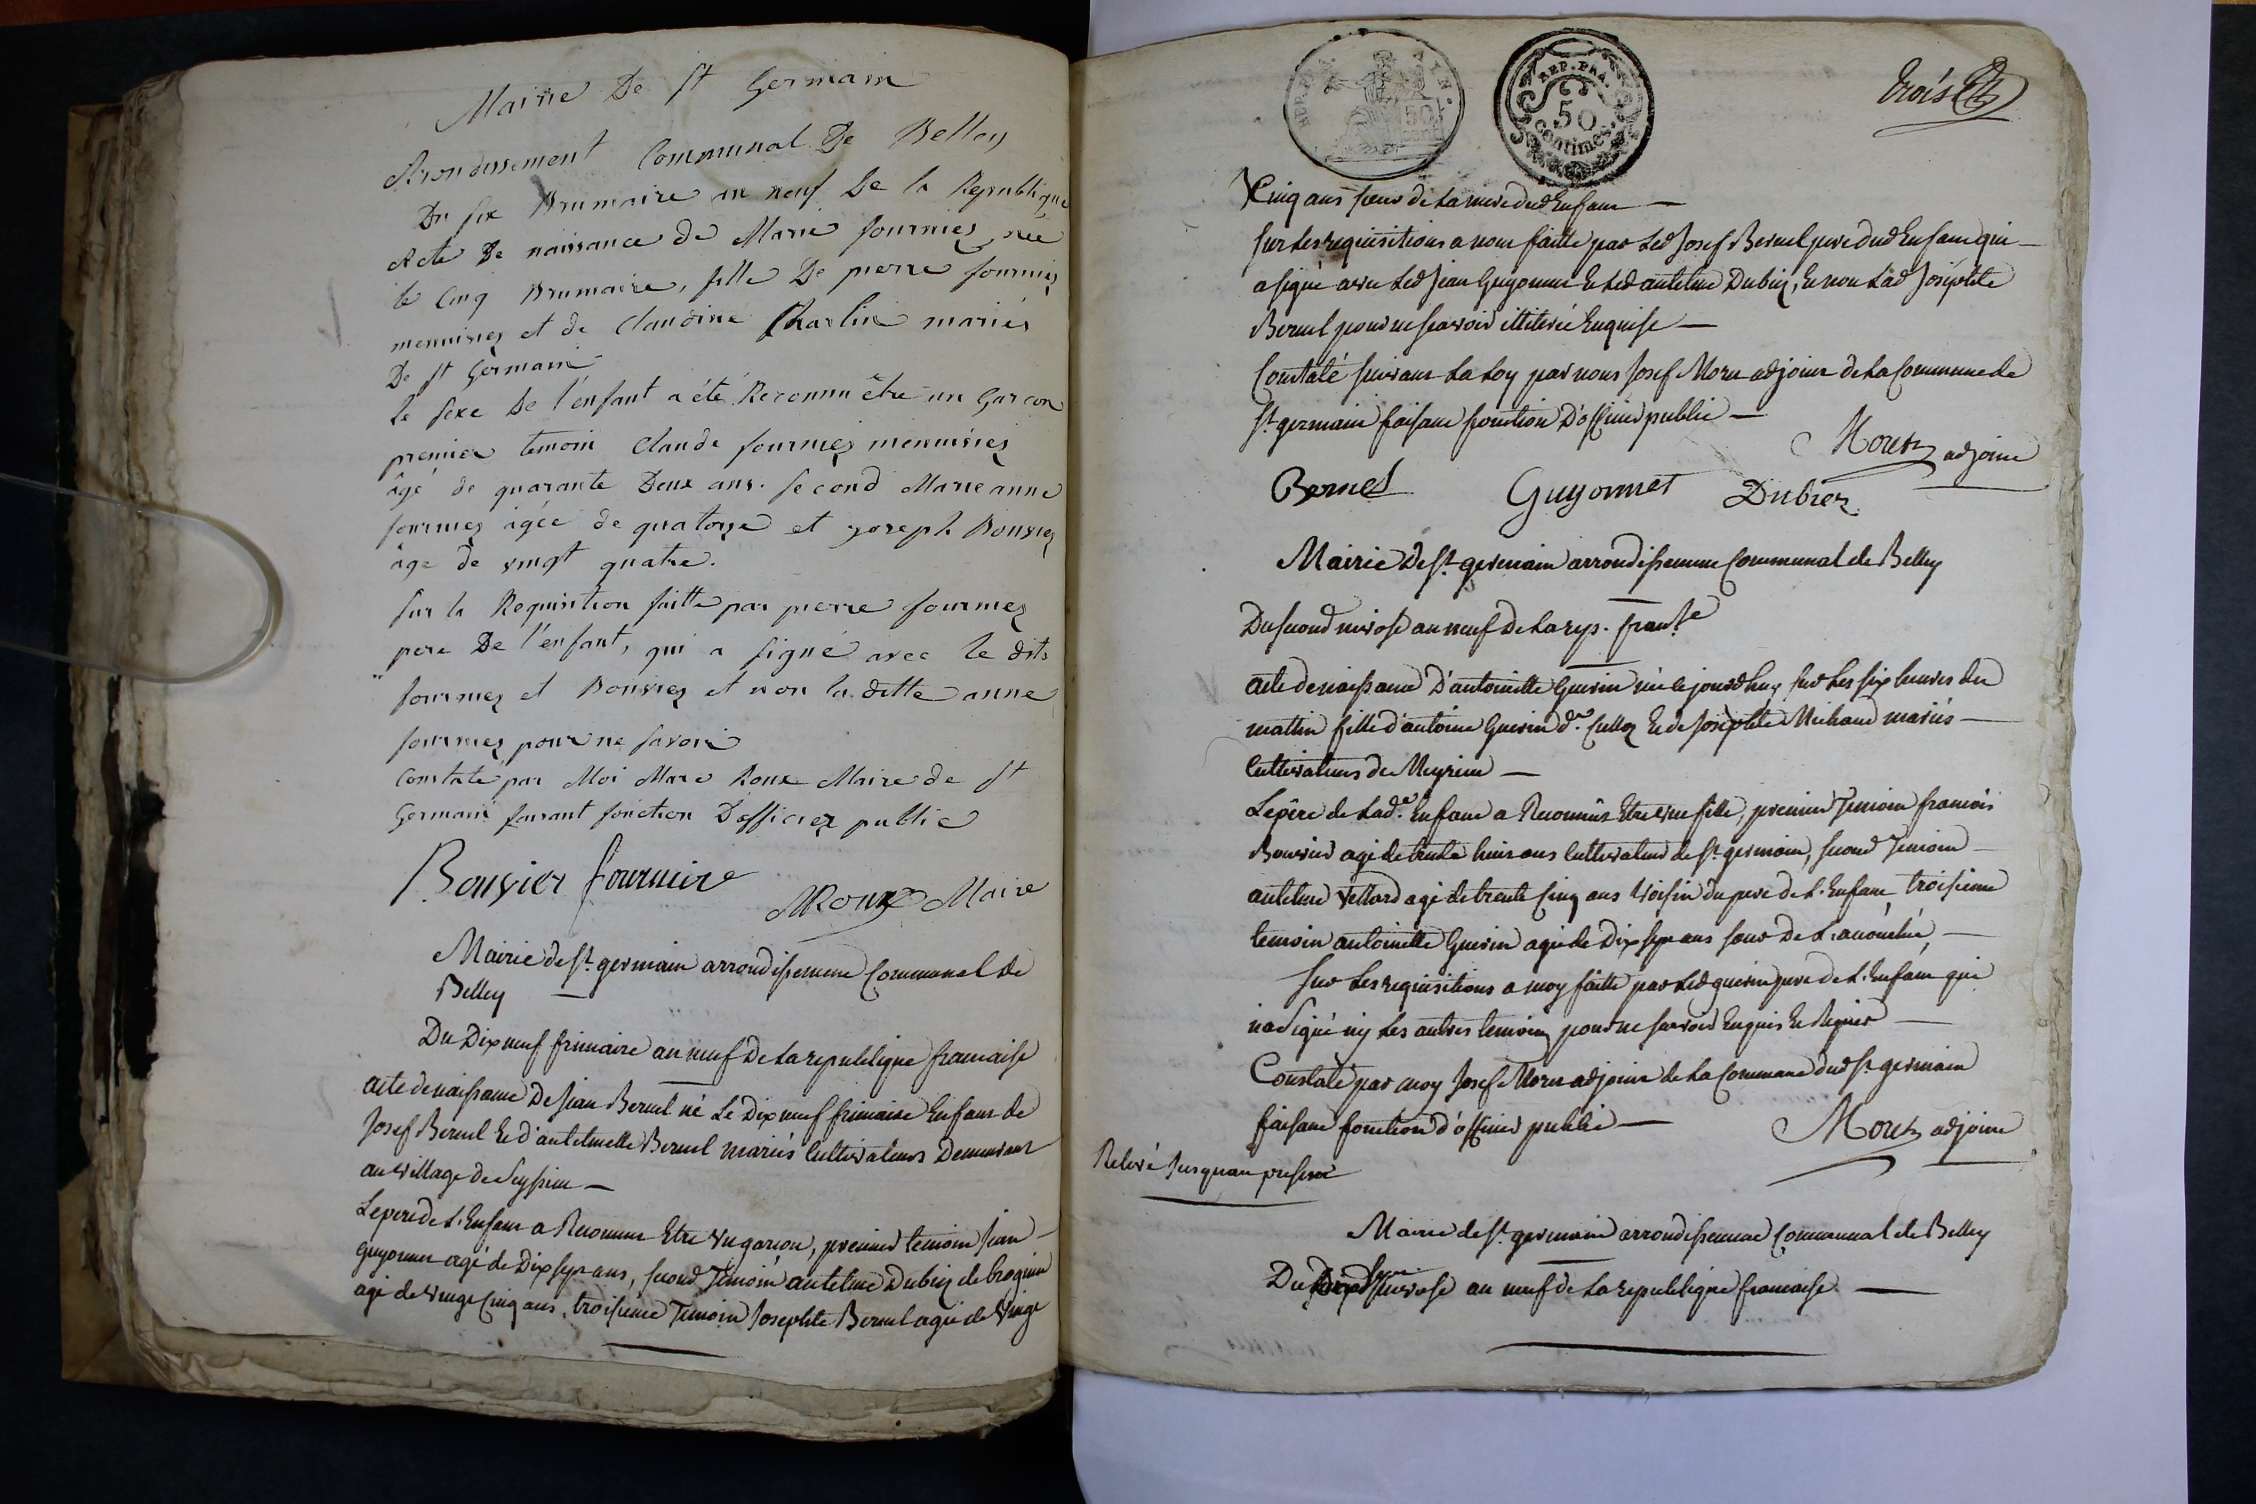 Mairie De St Germain
Arrondissement Communal De Belley
Du six Brumaire an neuf De la Republique
Acte De naissance de Marie fournier née
le Cinq Brumaire, fille De pierre fournier
menuisier et de Claudine Charlin mariés
De St Germain
le sexe De l'enfant a été Reconnu être un Garcon
premier temoin Claude fournier menuisier
âgé de quarante Deux ans. second Marie anne
fournier âgée de quatorze et joseph Bouvier
âge de vingt quatre.
sur la Requisition faitte par pierre fournier
pere De l'enfant, qui a signé avec le dits
fournier et Bouvier et non la ditte anne
fournier pour ne savoir
Constaté par Moi Marc Roux Maire de St
Germain faisant fonction D'officier public
Bouvier fournier
MRoux Maire
Mairie de St. germain arrondissement Communal de
Belley —
Du Dix neuf frimaire an neuf De la republique francaise
acte de naissance De jean Bernel né Le Dix neuf frimaire Enfant de
Josef Bernel Et d'antelmette Bernel mariés Cultivateurs Demeurant
au village de Seyssieu —
Le pere de L'Enfant a Reconnu Etre un garcon, premier temoin jean
guyonnet agé de Dix sept ans, second Temoin antelme Dubiez de brognin
agé de vingt Cinq ans, troisieme Temoin Josephte Bernel agée de vingt
REP. FRA.
50
centimes.
trois
Cinq ans soeur de La mere dud Enfant —
sur Les requisitions a nous faitte par Led Josef Bernel pere dud Enfant qui —
a signé avec Led Jean Guyonnet Et Led antelme Dubiez, Et non Lad Josephte
Bernel pour ne scavoir illiterée Enquise —
Constaté suivant La Loy par nous Josef Morez adjoint de La Commune de
St. germain faisant fonction D'officier public —
Morez adjoint
Bernel Guyonnet Dubiez
Mairie De St. germain arrondissement Communal de Belley
Du second nivose an neuf De La rep. franse
acte de naissance D'antoinette Guerin née ce jourdhuy sur Les six heures du
mattin fille d'antoine Guerin dt. Culloz Et de Josephte Michaud mariés —
Cultivateurs de Meyrieu —
Le père de Lade. Enfant a Reconnus Etre une fille, premier Temoin francois
Bouvier agé de trente huit ans Cultivateur de St. germain, second Temoin —
antelme Vettard agé de trente Cinq ans Voisin du pere de L'Enfant, troisieme
temoin antoinette Guerin agée de Dix sept ans soeur De L'accouchée, —
sur Les requisitions a moy faitte par Led guerin pere de L'Enfant qui
na signé ny Les autres temoins pour ne scavoir Enquis Et Requis —
Constaté par moy Josef Morez adjoint de La Commune dud St. germain
faisant fonction d'officier public —
Morez adjoint
Relevé Jusquau present
Mairie de St. germain arrondissement Communal de Belley
Du nivose an neuf de La republique francaise —